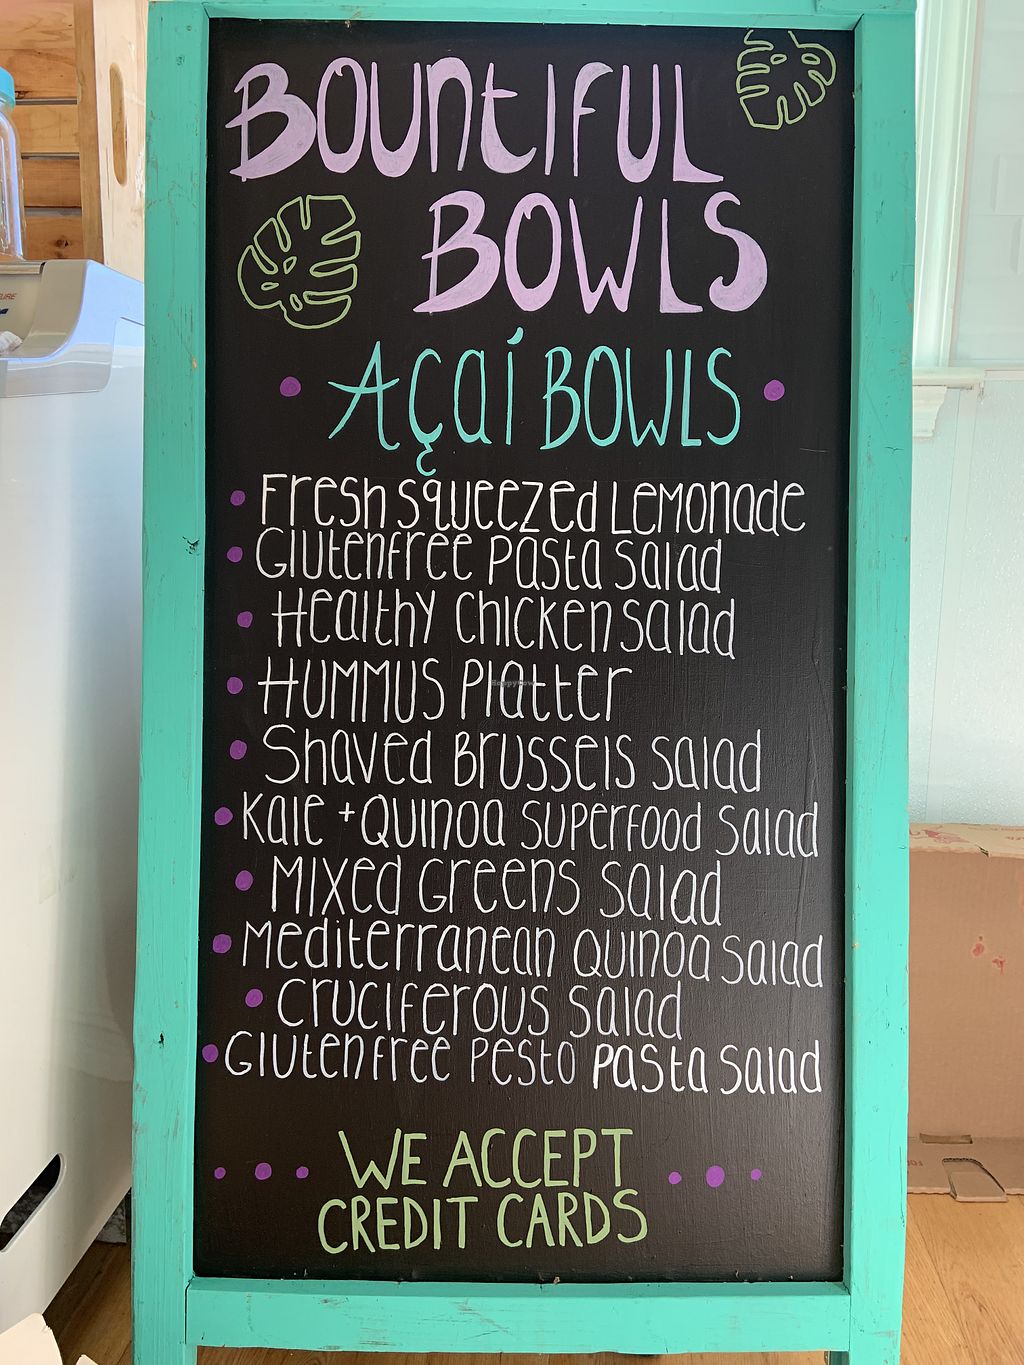 BOUNTIFUL
BOWLS
Açaí BOWLS
Fresh squeezed Lemonade
Glutenfree Pasta salad
Healthy Chicken salad
Hummus Platter
Shaved Brussels salad
Kale + Quinoa Superfood salad
Mixed Greens salad
Mediterranean Quinoa salad
Cruciferous salad
Glutenfree Pesto Pasta salad
WE ACCEPT
CREDIT CARDS